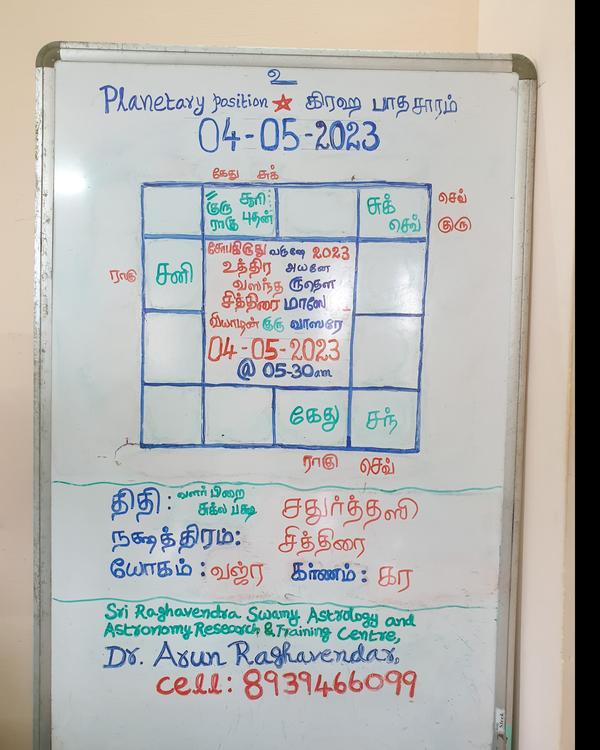 உ
Planetary position கிரஹ பாதசாரம்
04-05-2023
கேது சுக்
குரு சூரி
ராகு புதன்
சுக்
செவ்
செவ்
குரு
ராகு
சனி
சோபகிருது வருஷே 2023
உத்திர அயனே
வஸந்த ருதௌ
சித்திரை மாஸே
வியாழன் குரு வாஸரே
04-05-2023
@ 05-30am
கேது
சந்
ராகு செவ்
திதி: வளர்பிறை சதுர்த்தஸி
சுக்ல பக்ஷ
நக்ஷத்திரம்: சித்திரை
யோகம்: வஜ்ர கர்ணம்: கர
Sri Raghavendra Swamy Astrology and
Astronomy Research & Training Centre,
Dr. Arun Raghavendar,
cell: 8939466099